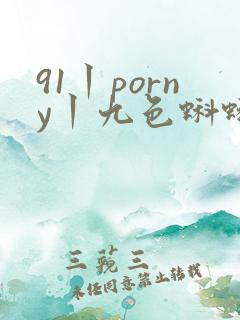 91丨porn
y丨九色蝌
三藐三
未经同意禁止转载